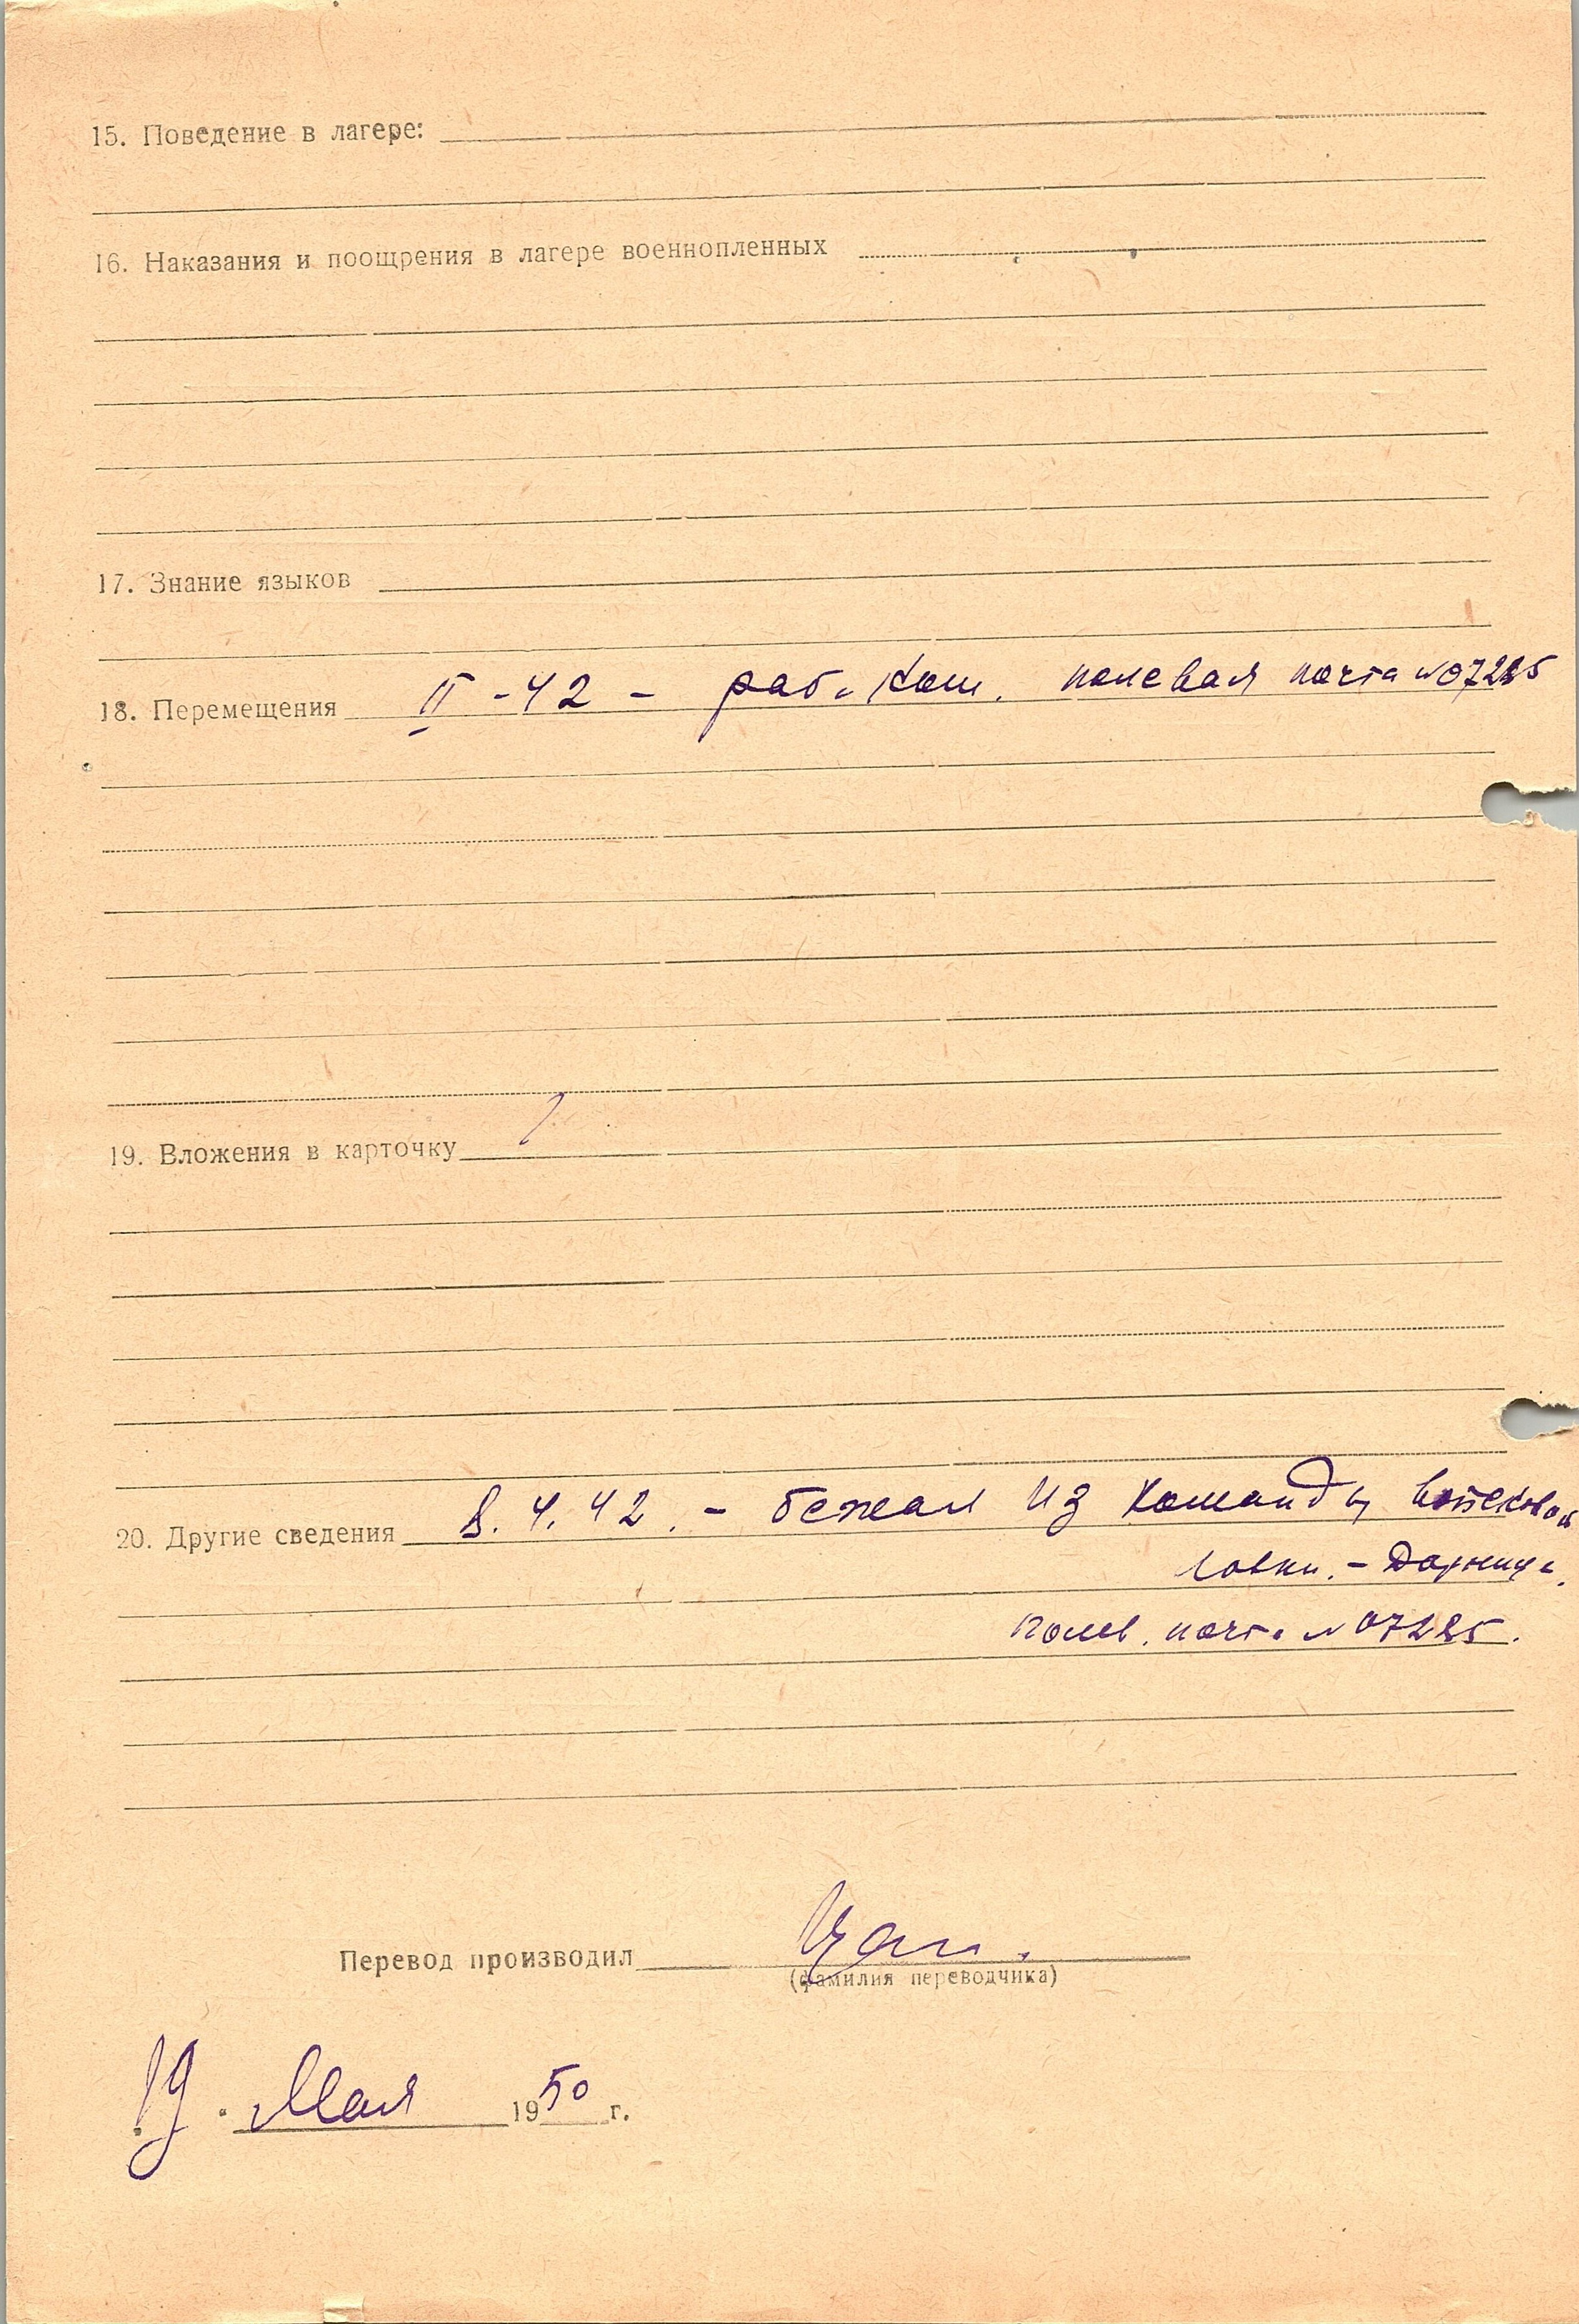 15. Поведение в лагере:
16. Наказания и поощрения в лагере военнопленных
17. Знание языков
18. Перемещения II -42 - раб. ком. полевая почта N 07285
19. Вложения в карточку
20. Другие сведения 8.4.42. - бежал из команды
- Дарница.
полев. почта N 07285.
Перевод производил
(фамилия переводчика)
19. Мая 1950 г.